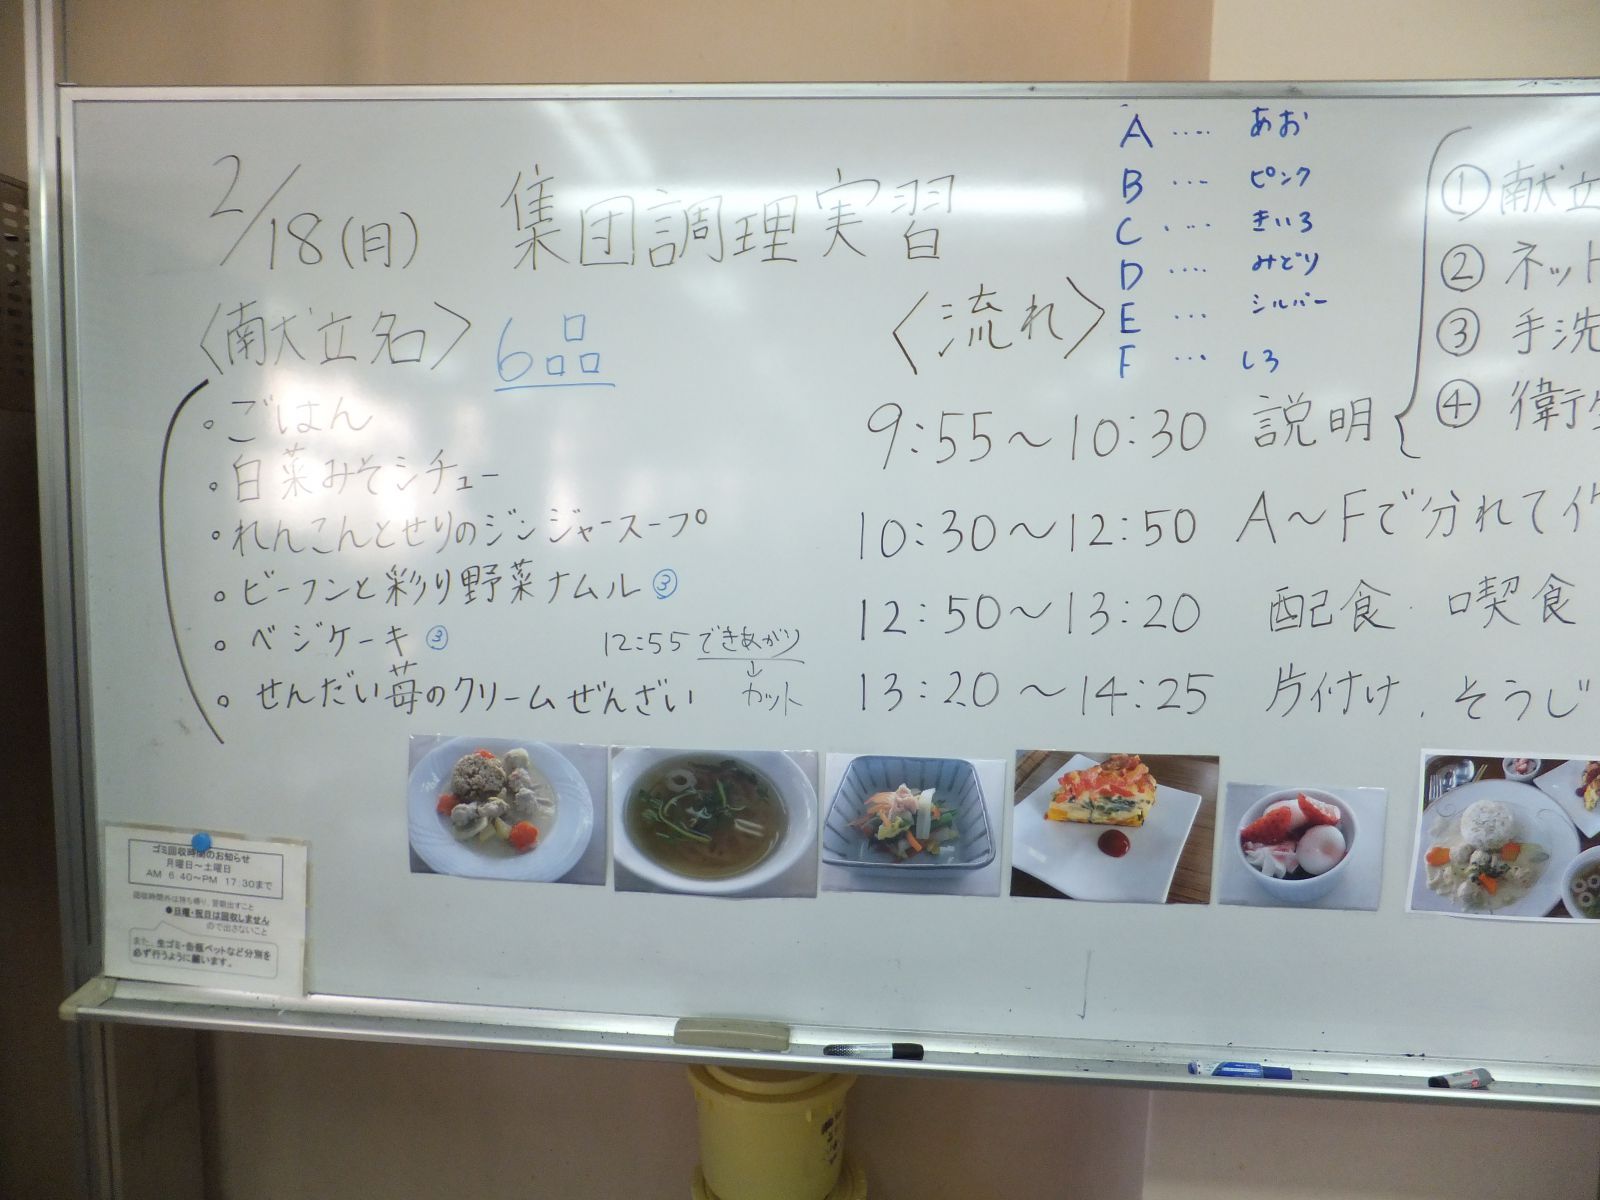 2/18(月) 集団調理実習
〈献立名〉 6品
・ごはん
・白菜みそシチュー
・れんこんとせりのジンジャースープ
・ビーフンと彩り野菜ナムル③
・ベジケーキ③
12:55 できあがり
↓
カット
・せんだい苺のクリームぜんざい
A .... あお
B ... ピンク
C .... きいろ
D .... みどり
E ... シルバー
F ... しろ
〈流れ〉
9:55〜10:30 説明
①献立
②ネット
③手洗
④衛生
10:30〜12:50 A〜Fで分れて作
12:50〜13:20 配食. 喫食
13:20〜14:25 片付け、そうじ
ゴミ回収時間のお知らせ
月曜日〜土曜日
AM 6:40〜PM 17:30まで
回収時間外は持ち帰り、翌朝出すこと
●日曜・祝日は回収しません
ので出さないこと
また、生ゴミ・缶瓶ペットなど分別を
必ず行うように願います。